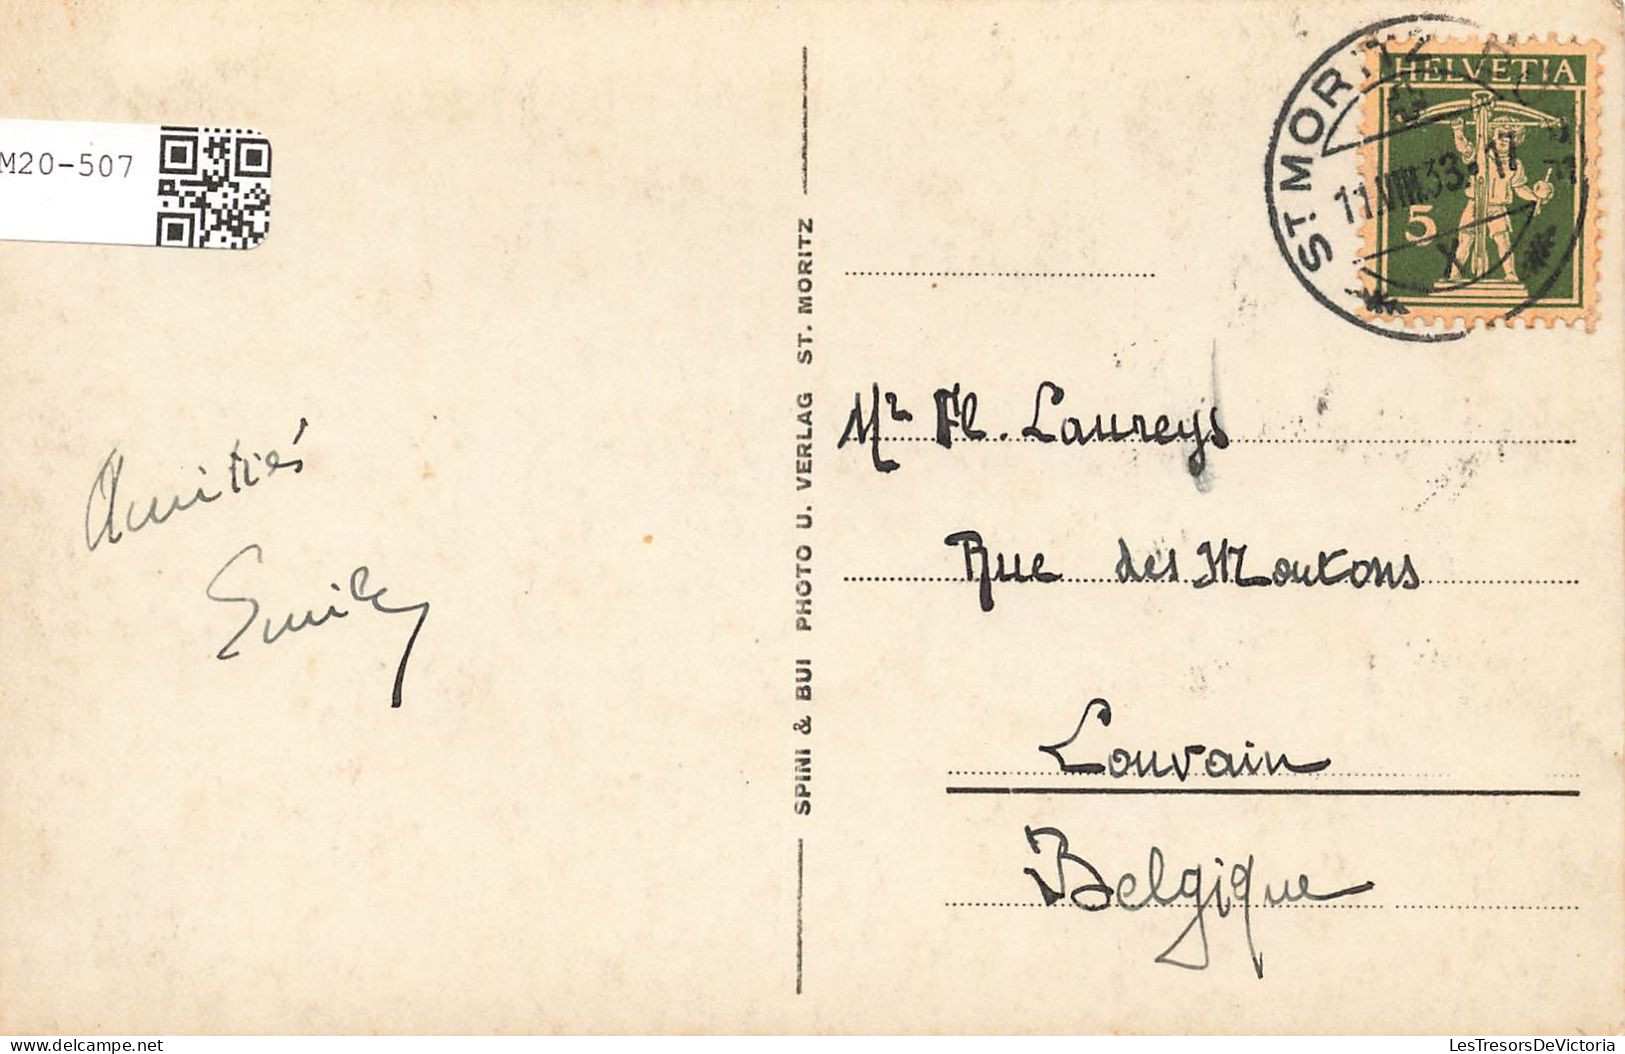 M20-507
HELVETIA
5
ST. MORITZ
11.VIII.33.-17
X
Amitiés
Emily
SPINI & BUI PHOTO U. VERLAG ST. MORITZ
Mr Fl. Laureys
Rue des Moutons
Louvain
Belgique
delcampe.net
LesTresorsDeVictoria